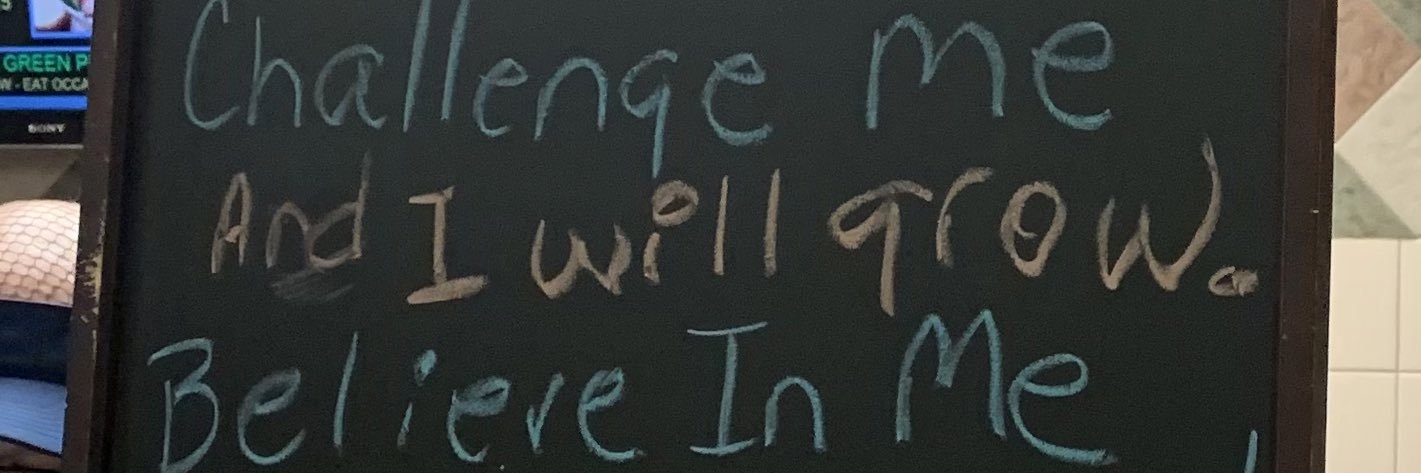 GREEN P
W - EAT OCCA
SONY
Challenge me
And I will grow.
Believe In Me